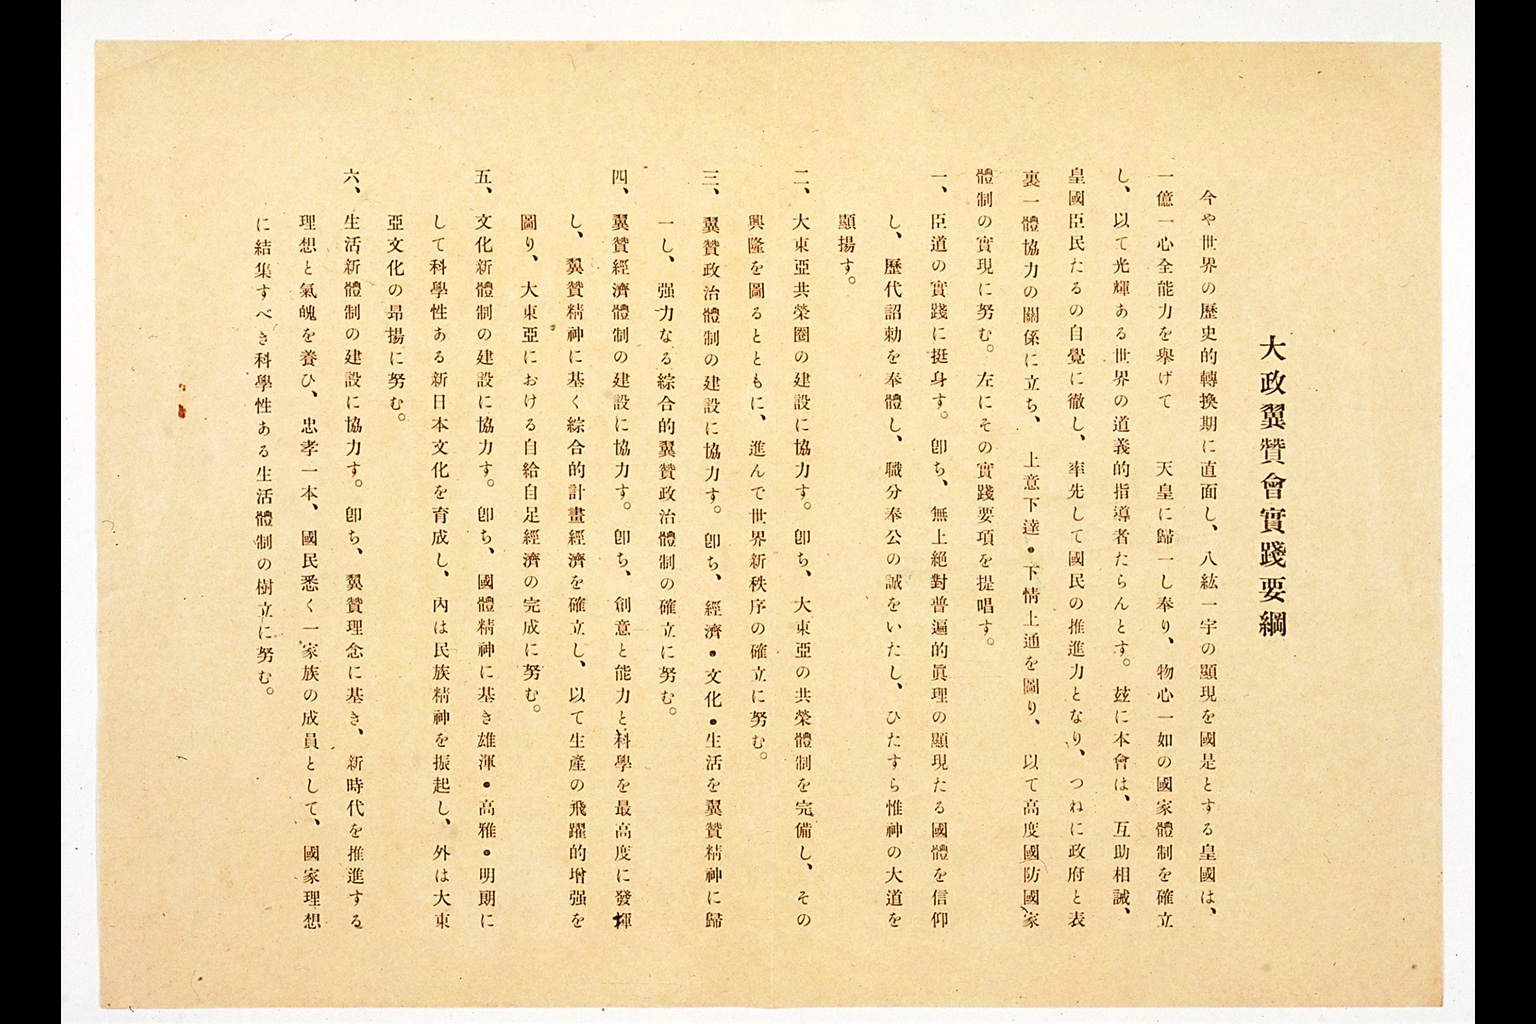 大政翼贊會實踐要綱
今や世界の歷史的轉換期に直面し、八紘一宇の顯現を國是とする皇國は、
一億一心全能力を擧げて　天皇に歸一し奉り、物心一如の國家體制を確立
し、以て光輝ある世界の道義的指導者たらんとす。玆に本會は、互助相誡、
皇國臣民たるの自覺に徹し、率先して國民の推進力となり、つねに政府と表
裏一體協力の關係に立ち、上意下達・下情上通を圖り、以て高度國防國家
體制の實現に努む。左にその實踐要項を提唱す。
一、臣道の實踐に挺身す。卽ち、無上絕對普遍的眞理の顯現たる國體を信仰
し、歷代詔勅を奉體し、職分奉公の誠をいたし、ひたすら惟神の大道を
顯揚す。
二、大東亞共榮圈の建設に協力す。卽ち、大東亞の共榮體制を完備し、その
興隆を圖るとともに、進んで世界新秩序の確立に努む。
三、翼贊政治體制の建設に協力す。卽ち、經濟・文化・生活を翼贊精神に歸
一し、强力なる綜合的翼贊政治體制の確立に努む。
四、翼贊經濟體制の建設に協力す。卽ち、創意と能力と科學を最高度に發揮
し、翼贊精神に基く綜合的計畫經濟を確立し、以て生產の飛躍的增强を
圖り、大東亞における自給自足經濟の完成に努む。
五、文化新體制の建設に協力す。卽ち、國體精神に基き雄渾・高雅・明朗に
して科學性ある新日本文化を育成し、內は民族精神を振起し、外は大東
亞文化の昂揚に努む。
六、生活新體制の建設に協力す。卽ち、翼贊理念に基き、新時代を推進する
理想と氣魄を養ひ、忠孝一本、國民悉く一家族の成員として、國家理想
に結集すべき科學性ある生活體制の樹立に努む。